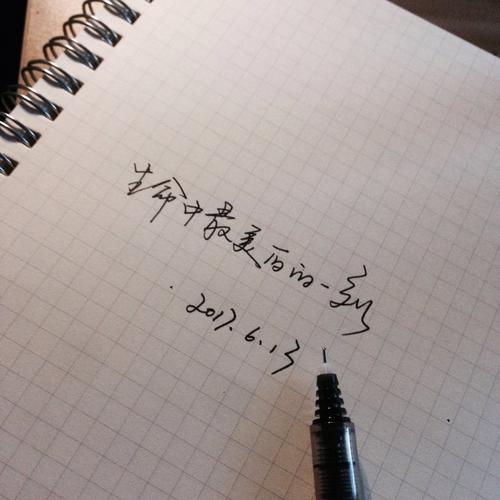 生命中最美后的一刻
2017.6.13